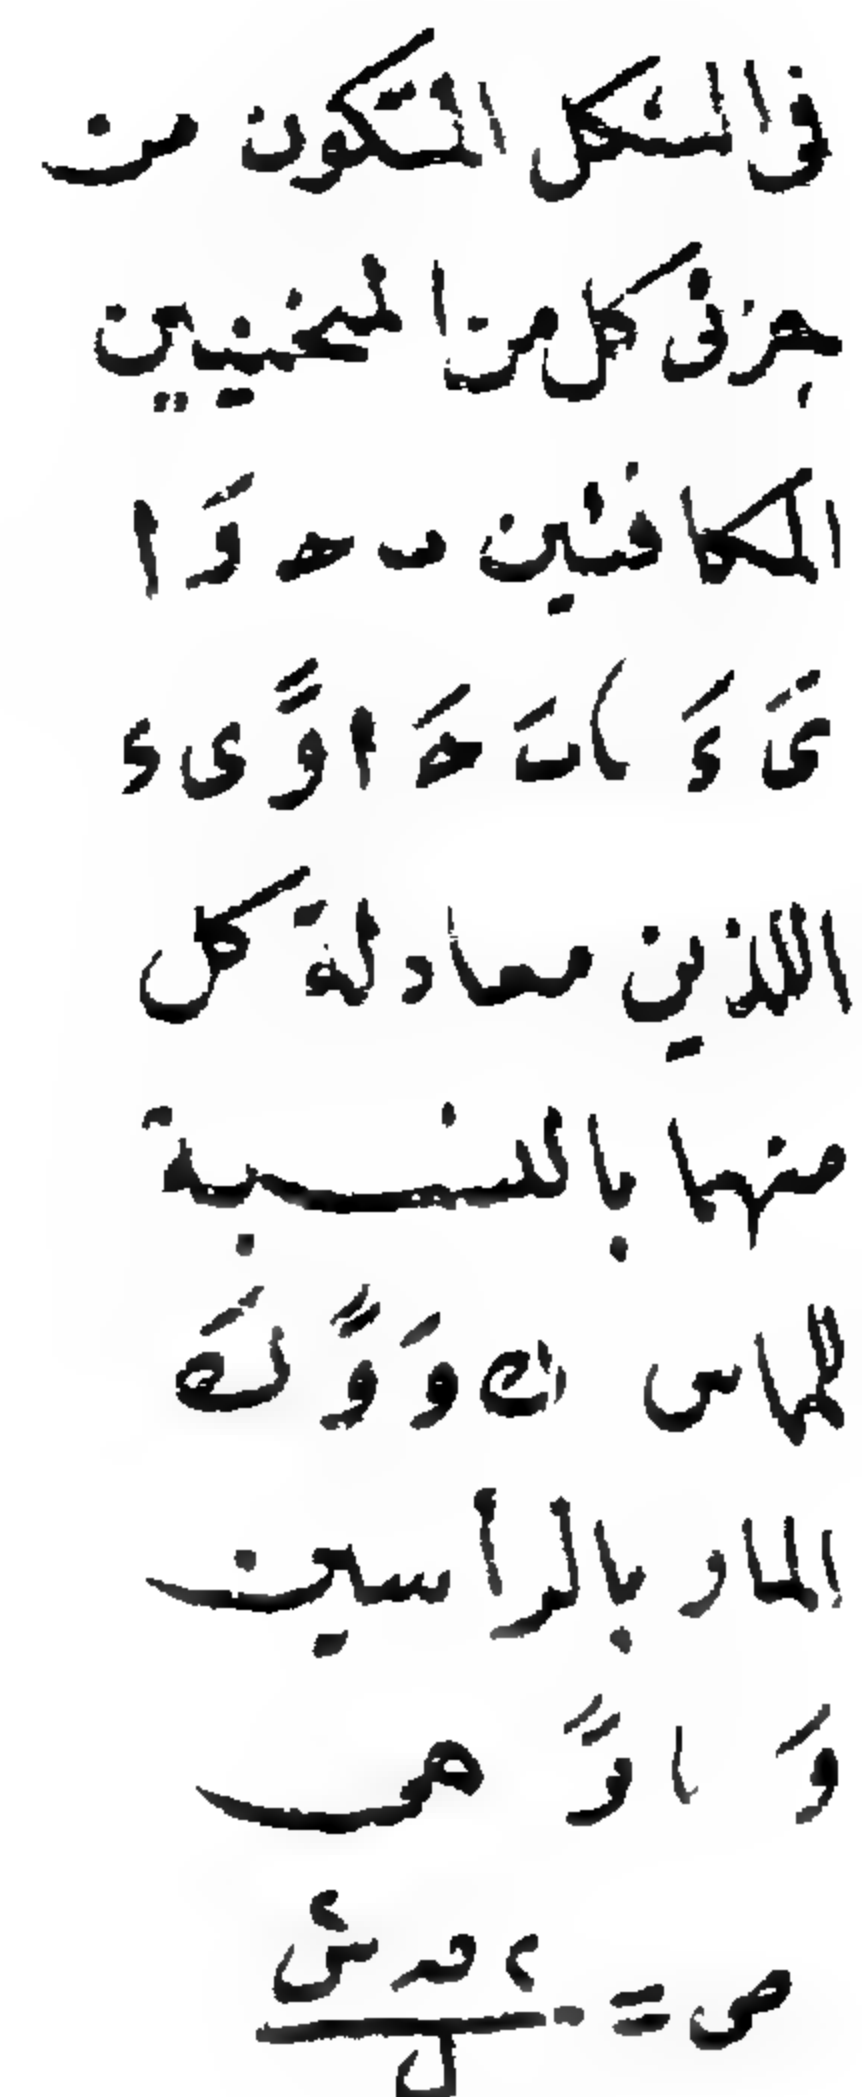 فى الشكل المتكون من
جزئى كل من المنحنيين
المكافئين ں ھ وَ ا
ىَ ءَ ، ںَ ھَ ا وً ى ء
اللذين معادلة كل
منهما بالنسبة
للماس ك وَ وً كَ
المار بالرأسين
وَ ، وً هى
ص = ٢ ص س٢ / ل